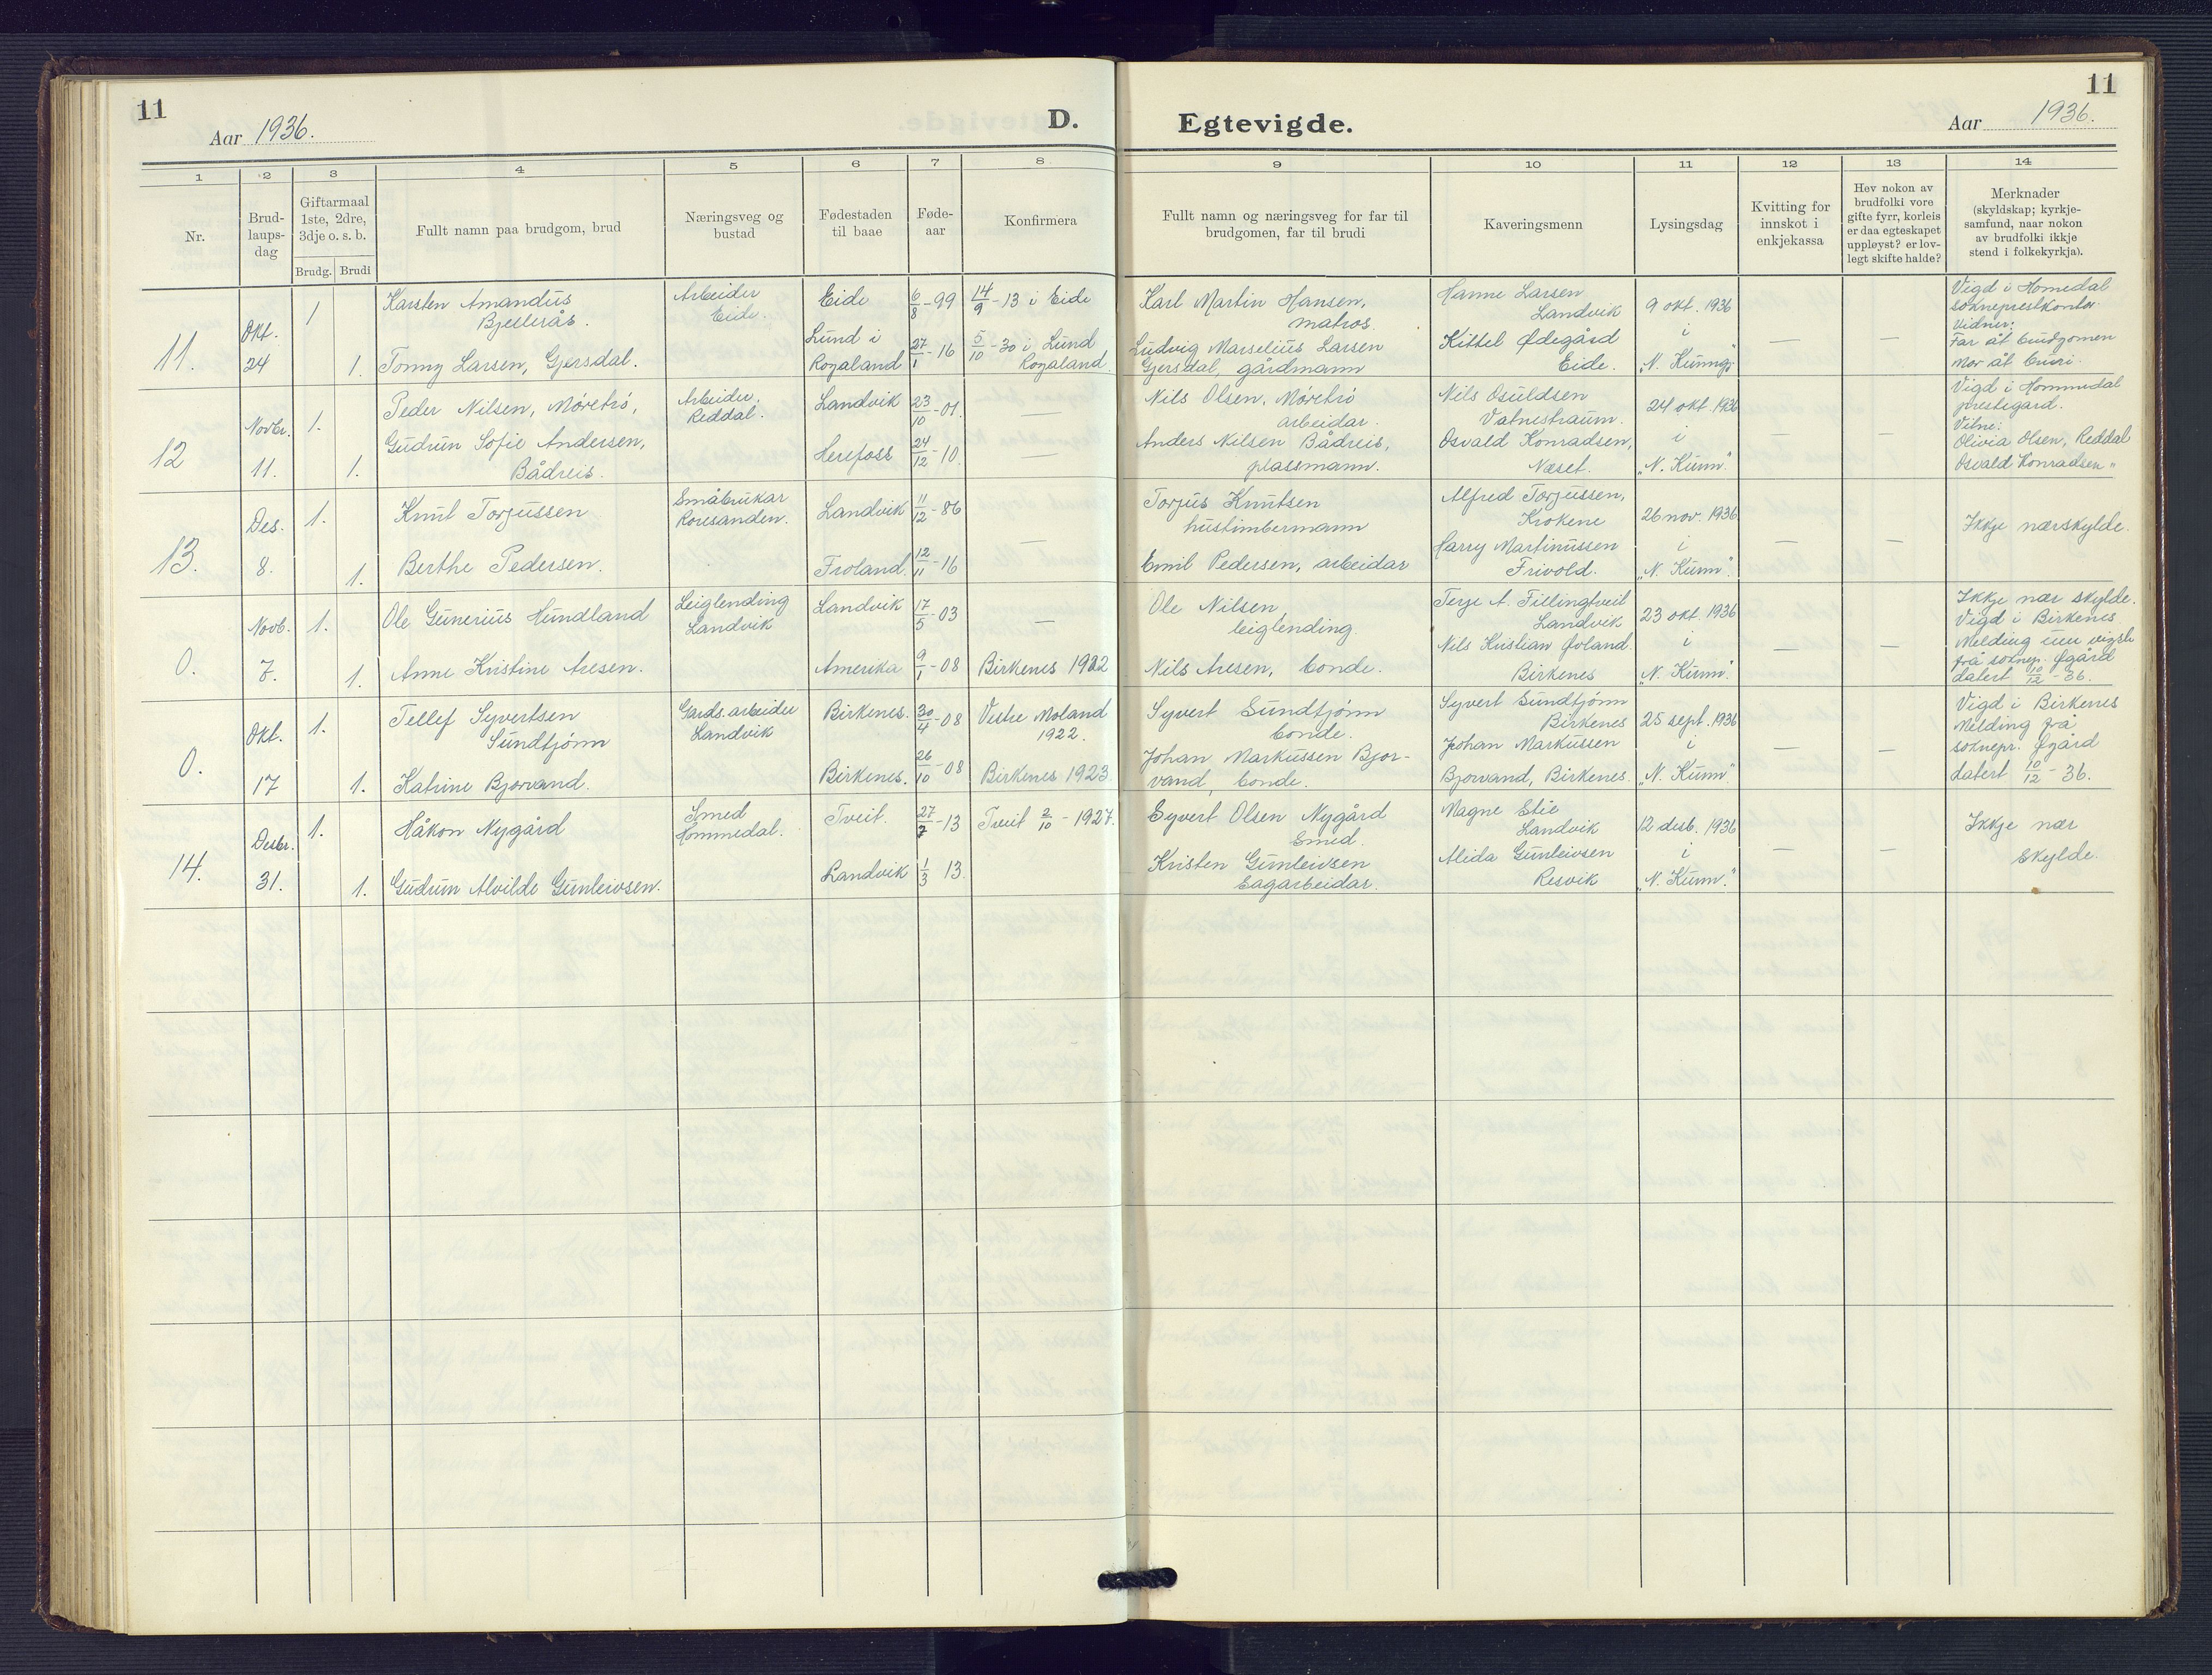 11
Aar 1936.
D.
Egtevigde.
11
Aar 1936.
1 2 3 4 5 6 7 8 9 10 11 12 13 14
Nr.
Brud-
laups-
dag
Giftarmaal
1ste, 2dre,
3dje o. s. b.
Brudg. Brudi
Fullt namn paa brudgom, brud
Næringsveg og
bustad
Fødestaden
til baae
Føde-
aar
Konfirmera
Fullt namn og næringsveg for far til
brudgomen, far til brudi
Kaveringsmenn
Lysingsdag
Kvitting for
innskot i
enkjekassa
Hev nokon av
brudfolki vore
gifte fyrr, korleis
er daa egteskapet
uppløyst? er lov-
legt skifte halde?
Merknader
(skyldskap; kyrkje-
samfund, naar nokon
av brudfolki ikkje
stend i folkekyrkja).
11.
Okt.
24
1
1.
Karsten Amandus
Bjellerås.
Tonny Larsen, Gjersdal.
Arbeider
Eide.
Eide
Lund i
Rogaland
6/8-99
27/1-16
14/9-13 i Eide
5/10-30 i Lund
Rogaland.
Karl Martin Hansen,
matros.
Ludvig Marselius Larsen
Gjersdal, gårdmann
Hanne Larsen
Landvik
Kittel Ødegård
Eide.
9 okt. 1936
i
—
—
Vigd i Homedal
sokneprestkontor
Vidner:
Far åt brudgomen
Mor åt brudi.
12
Novbr.
11.
1.
1.
Peder Nilsen, Møretrø,
Gudrun Sofie Andersen,
Bådreis.
Arbeider.
Reddal.
Landvik
Herefoss
23/10-01.
24/12-10.
—
—
Nils Olsen, Møretrø
arbeidar.
Anders Nilsen Bådreis,
plassmann.
Nils Osuldsen
Vatnestraum.
Osvald Konradsen,
Næset.
24 okt. 1936
i
"N. Kunn."
—
—
Vigd i Hommedal
prestegard.
Vitne:
Olivia Olsen, Reddal
Osvald Konradsen "
13.
Des.
8.
1.
1.
Knut Torjussen
Berthe Pedersen.
Småbrukar
Roresanden.
Landvik
Froland.
11/12-86
12/11-16
—
Torjus Knutsen
hustimbermann
Emil Pedersen, arbeidar
Alfred Torjussen,
Krokene
Harry Martinussen
Frivold.
26 nov. 1936
i
"N. Kunn".
—
—
Ikkje nærskylde.
0.
Novb.
7.
1.
1.
Ole Gunerius Hundland
Anne Kristine Aresen.
Leiglending
Landvik
Landvik
Amerika
17/5-03
9/1-08
—
Birkenes 1922
Ole Nilsen
leiglending
Nils Aresen, bonde.
Terje A. Tillingtveit
Landvik
Nils Kristian Øvland.
Birkenes
23 okt. 1936
i
"N. Kunn."
—
—
Ikkje nær skylde.
Vigd i Birkenes
Melding um vigsle
frå soknepr. Øgård
datert 10/12-36.
0.
Okt.
17
1.
1.
Tellef Syvertsen
Sundtjønn
Katrine Bjorvand.
Gards.arbeider
Landvik
Birkenes.
Birkenes.
30/4-08
26/10-08
Vestre Moland
1922.
Birkenes 1923
Syvert Sundtjønn
bonde.
Johan Markussen Bjor-
vand, bonde.
Syvert Sundtjønn
Birkenes
Johan Markussen
Bjorvand, Birkenes.
25 sept. 1936
i
"N. Kunn"
—
—
Vigd i Birkenes
Melding frå
soknepr. Øgård
datert 10/12-36.
14.
Desbr.
31.
1.
1.
Håkon Nygård
Gudrun Alvilde Gunleivsen.
Smed
Hommedal.
Tveit.
Landvik
27/7-13
1/3 13.
Tveit 2/10-1927.
Syvert Olsen Nygård
Smed.
Kristen Gunleivsen
Sagarbeidar.
Magne Stie
Landvik
Alida Gunleivsen
Resvik
12 desb. 1936
i
"N. Kunn."
—
—
Ikkje nær
skylde.